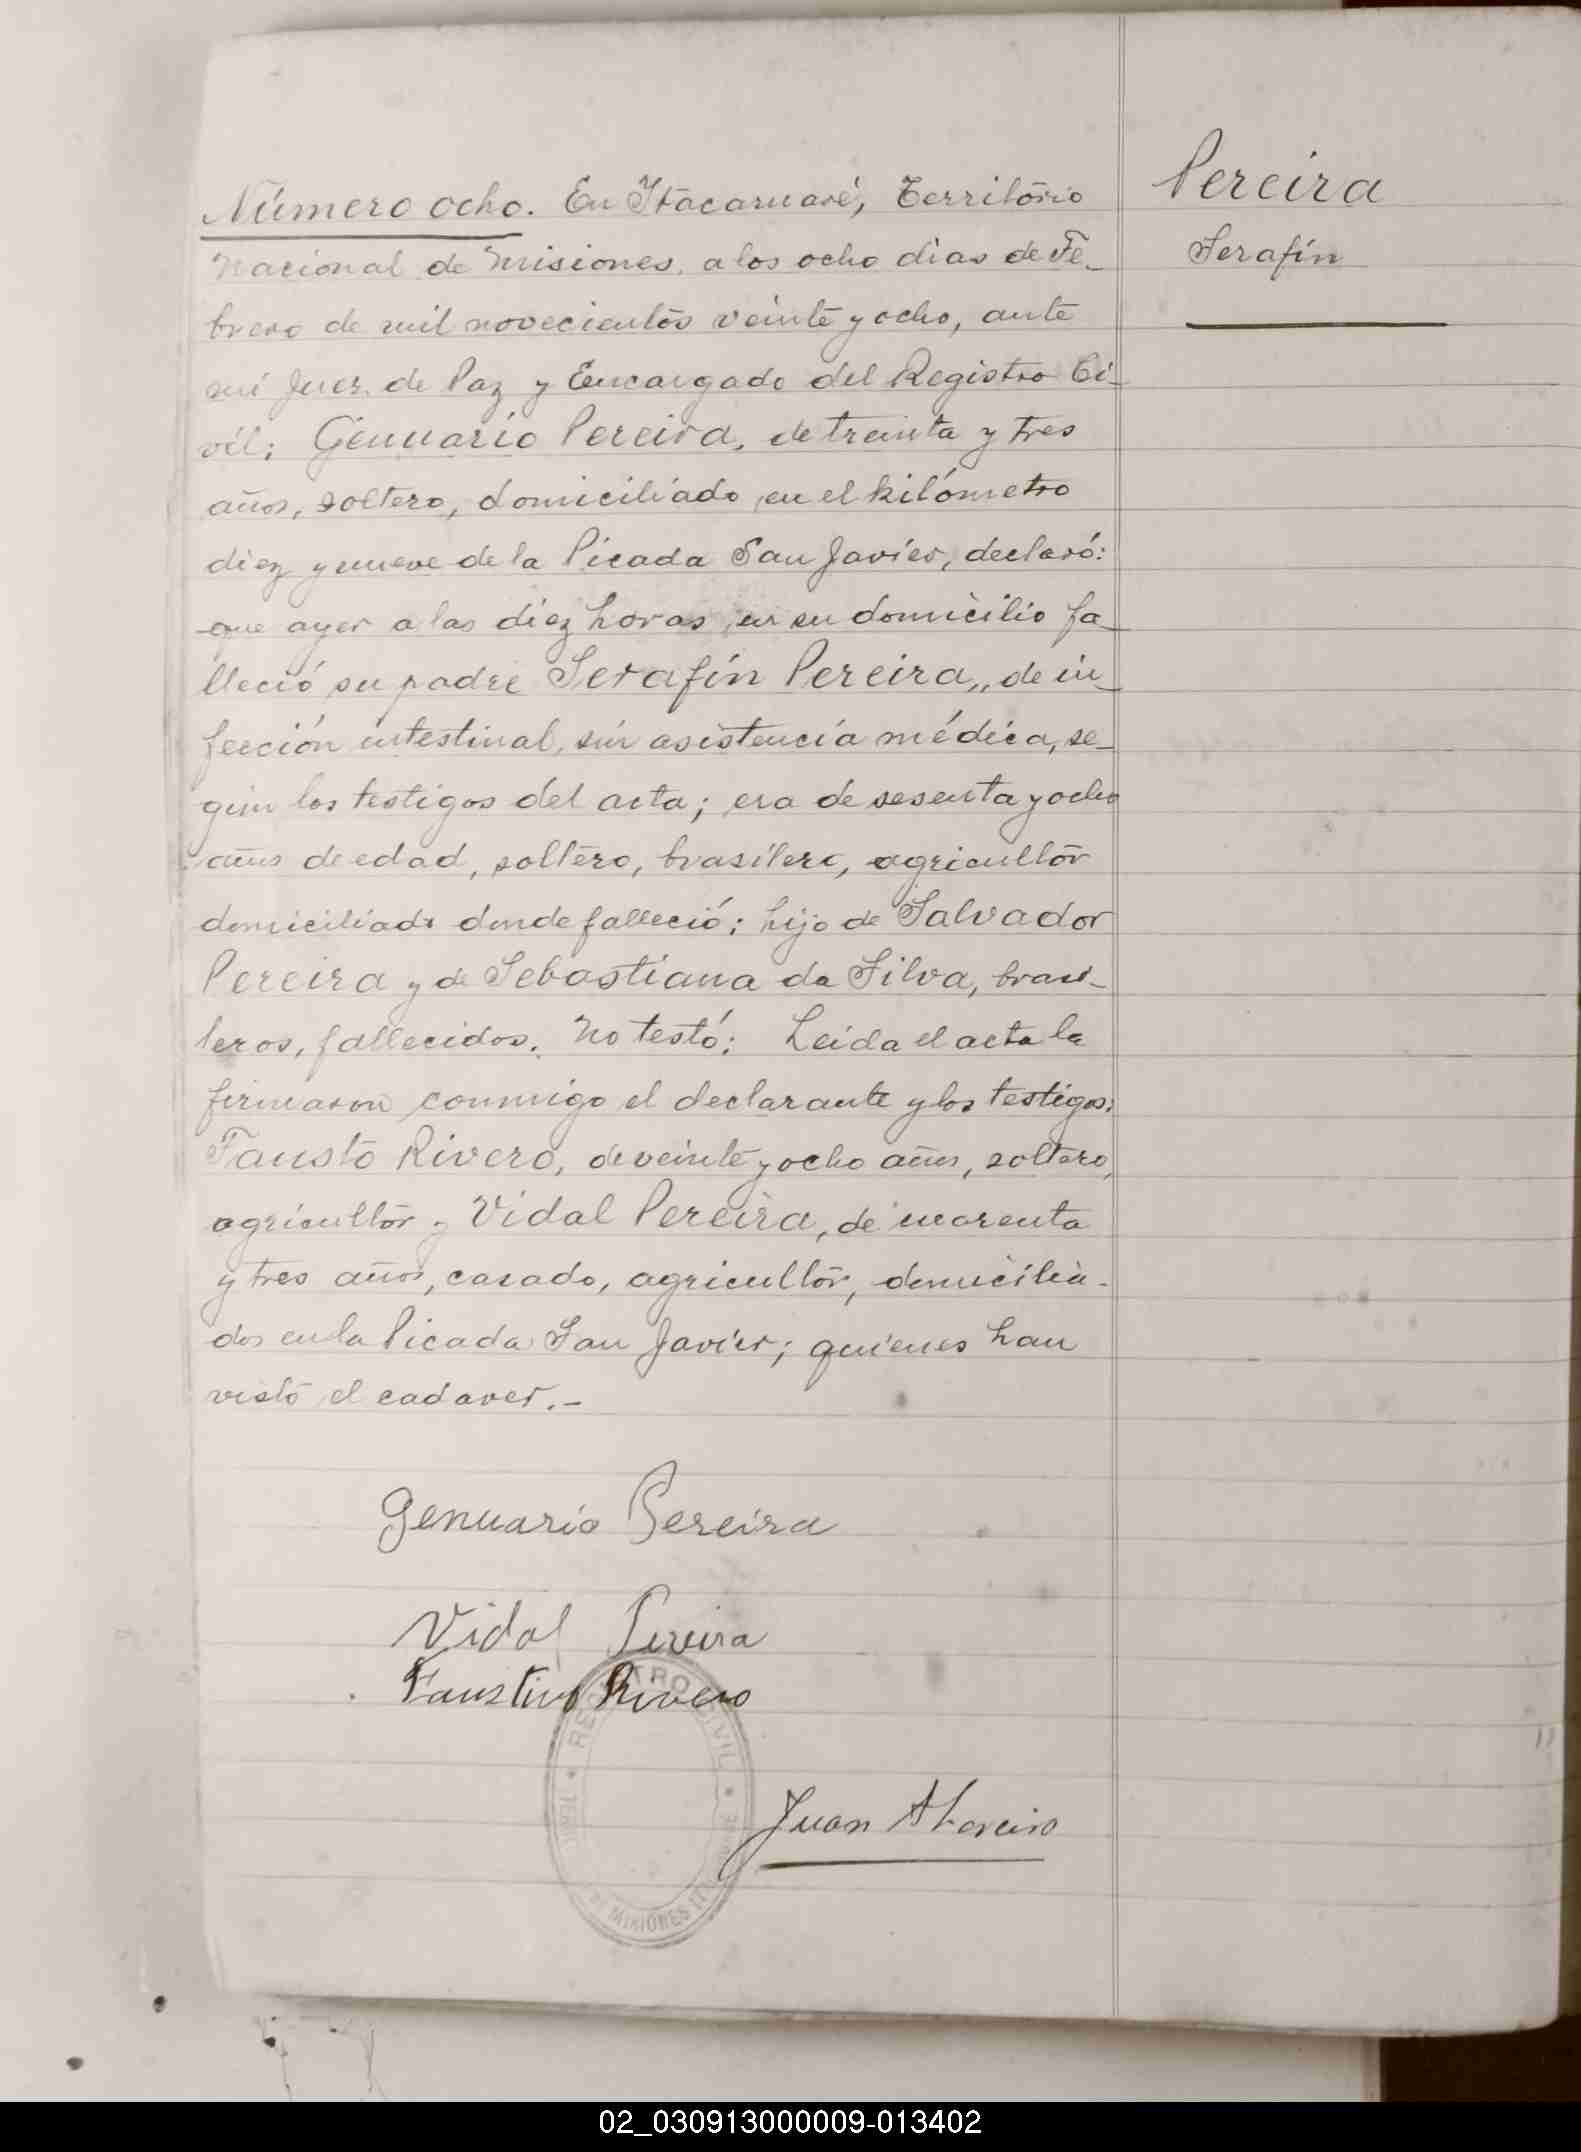 Número ocho. En Itacaruaré, Território
Nacional de Misiones, a los ocho dias de Fe-
brero de mil novecientos veinte y ocho, ante
mi Juez de Paz y Encargado del Registro Ci-
vil; Genuario Pereira, de treinta y tres
años, soltero, domiciliado en el kilómetro
diez y nueve de la Picada San Javier, declaró:
que ayer a las diez horas en su domicilio fa-
lleció su padre Serafín Pereira, de in-
fección intestinal, sin asistencia médica, se-
gún los testigos del acta; era de sesenta y ocho
años de edad, soltero, brasilero, agricultor
domiciliado donde falleció; hijo de Salvador
Pereira y de Sebastiana da Silva, brasi-
leros, fallecidos. No testó: Leida el acta la
firmaron conmigo el declarante y los testigos:
Fausto Rivero, de veinte y ocho años, soltero,
agricultor y Vidal Pereira, de cuarenta
y tres años, casado, agricultor, domicilia-
dos en la Picada San Javier; quienes han
visto el cadaver.-
Pereira
Serafín
Genuario Pereira
Vidal Pereira
Faustino Rivero
REGISTRO CIVIL
DE MISIONES
Juan
02_030913000009-013402